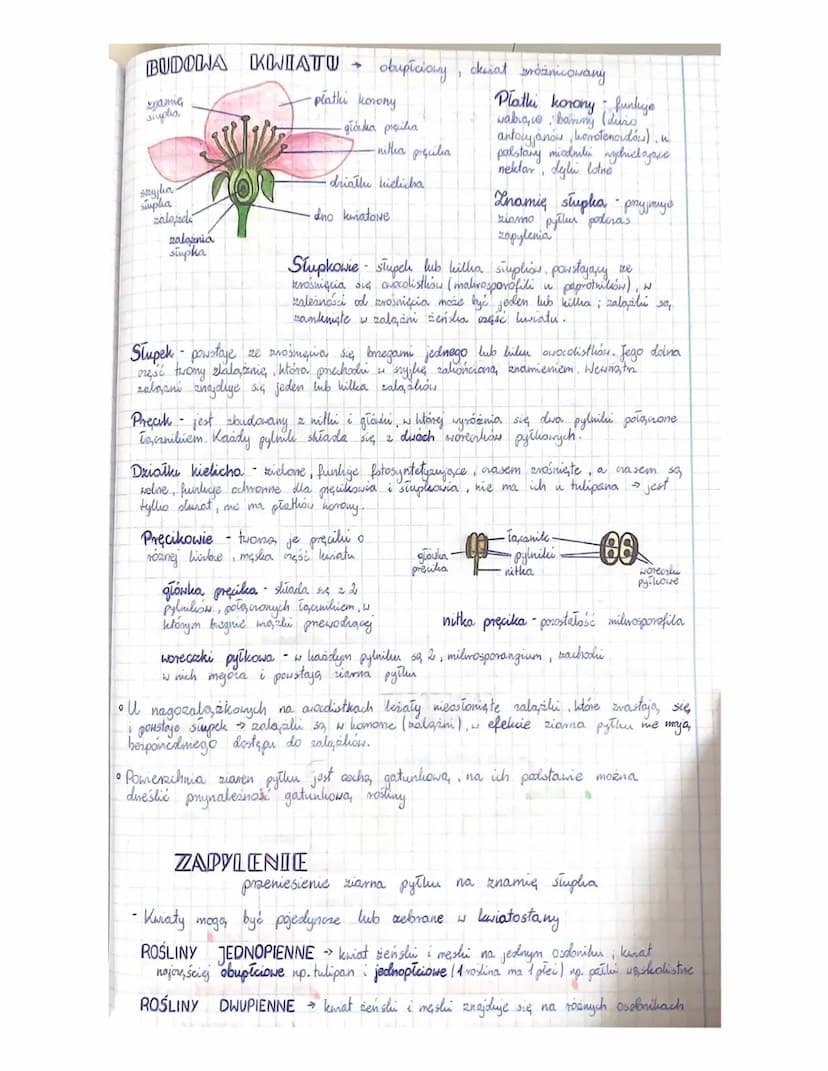 BUDOWA KWIATU → obupłciowy, okwiat zróżnicowany
znamię
słupka
płatki korony
główka pręcika
nitka pręcika
działka kielicha
szyjka
słupka
zalążek
dno kwiatowe
zalążnia
słupka
Płatki korony - funkcje
wabiące, barwny (dużo
antocyjanów, karotenoidów), u
podstawy miodniki wydzielające
nektar, olejki lotne
Znamię słupka - przyjmuje
ziarno pyłku podczas
zapylenia
Słupkowie - słupek lub kilka słupków, powstający ze
zrośnięcia się owocolistków (makrosporofili u paprotników), w
zależności od zrośnięcia może być jeden lub kilka; zalążki są
zamknięte w zalążni żeńska część kwiatu.
Słupek - powstaje ze zrośnięcia się brzegami jednego lub kilku owocolistków. Jego dolna
część tworzy zalążnię, która przechodzi w szyjkę zakończoną znamieniem. Wewnątrz
zalążni znajduje się jeden lub kilka zalążków
Pręcik - jest zbudowany z nitki i główki, w której wyróżnia się dwa pylniki połączone
łącznikiem. Każdy pylnik składa się z dwóch woreczków pyłkowych.
Działki kielicha - zielone, funkcje fotosyntetyzujące, czasem zrośnięte, a czasem są
wolne, funkcje ochronne dla pręcikowia i słupkowia, nie ma ich u tulipana → jest
tylko okwiat, nie ma płatków korony.
Pręcikowie - tworzą je pręciki o
różnej liczbie, męska część kwiatu
główka
pręcika
łącznik
pylniki
nitka
woreczki
pyłkowe
główka pręcika - składa się z 2
pylników, połączonych łącznikiem, w
którym biegnie wiązki przewodzącej
nitka pręcika - pozostałość mikrosporofila
woreczki pyłkowa - w każdym pylniku są 2, mikrosporangium, zachodzi
w nich mejoza i powstają ziarna pyłku
° U nagozalążkowych na owocolistkach leżały nieosłonięte zalążki, które zrastają się
i powstaje słupek → zalążki są w komorze (zalążni), w efekcie ziarna pyłku nie mają
bezpośredniego dostępu do zalążków.
° Powierzchnia ziaren pyłku jest cechą gatunkową, na ich podstawie można
określić przynależność gatunkową rośliny
ZAPYLENIE
przeniesienie ziarna pyłku na znamię słupka
- Kwiaty mogą być pojedyncze lub zebrane w kwiatostany
ROŚLINY JEDNOPIENNE → kwiat żeński i męski na jednym osobniku, kwiat
najczęściej obupłciowe np. tulipan i jednopłciowe (1 roślina ma 1 płeć) np. pałki wąskolistne
ROŚLINY DWUPIENNE → kwiat żeński i męski znajduje się na różnych osobnikach